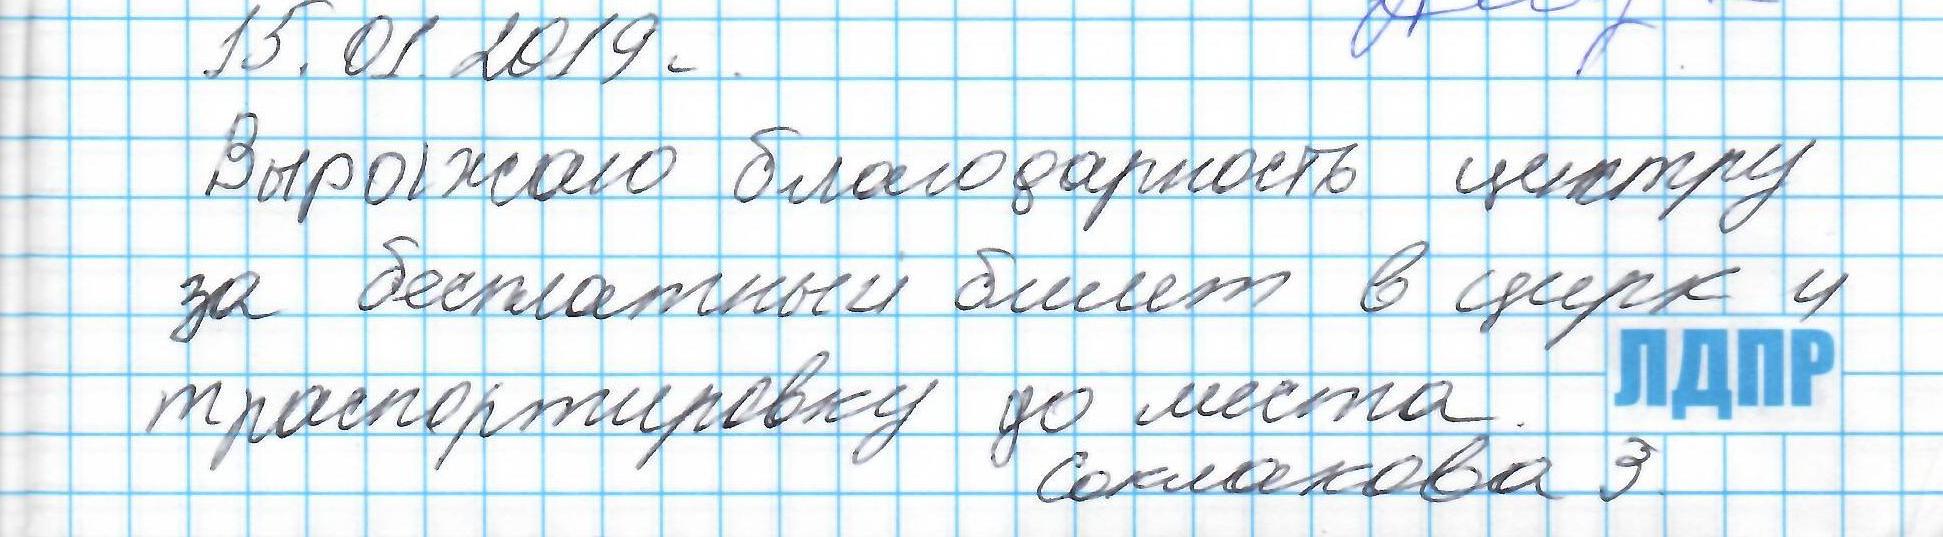 15.01.2019г.
Выражаю благодарность центру
за бесплатный билет в цирк и
траспортировку до места.
ЛДПР
Соклакова З.